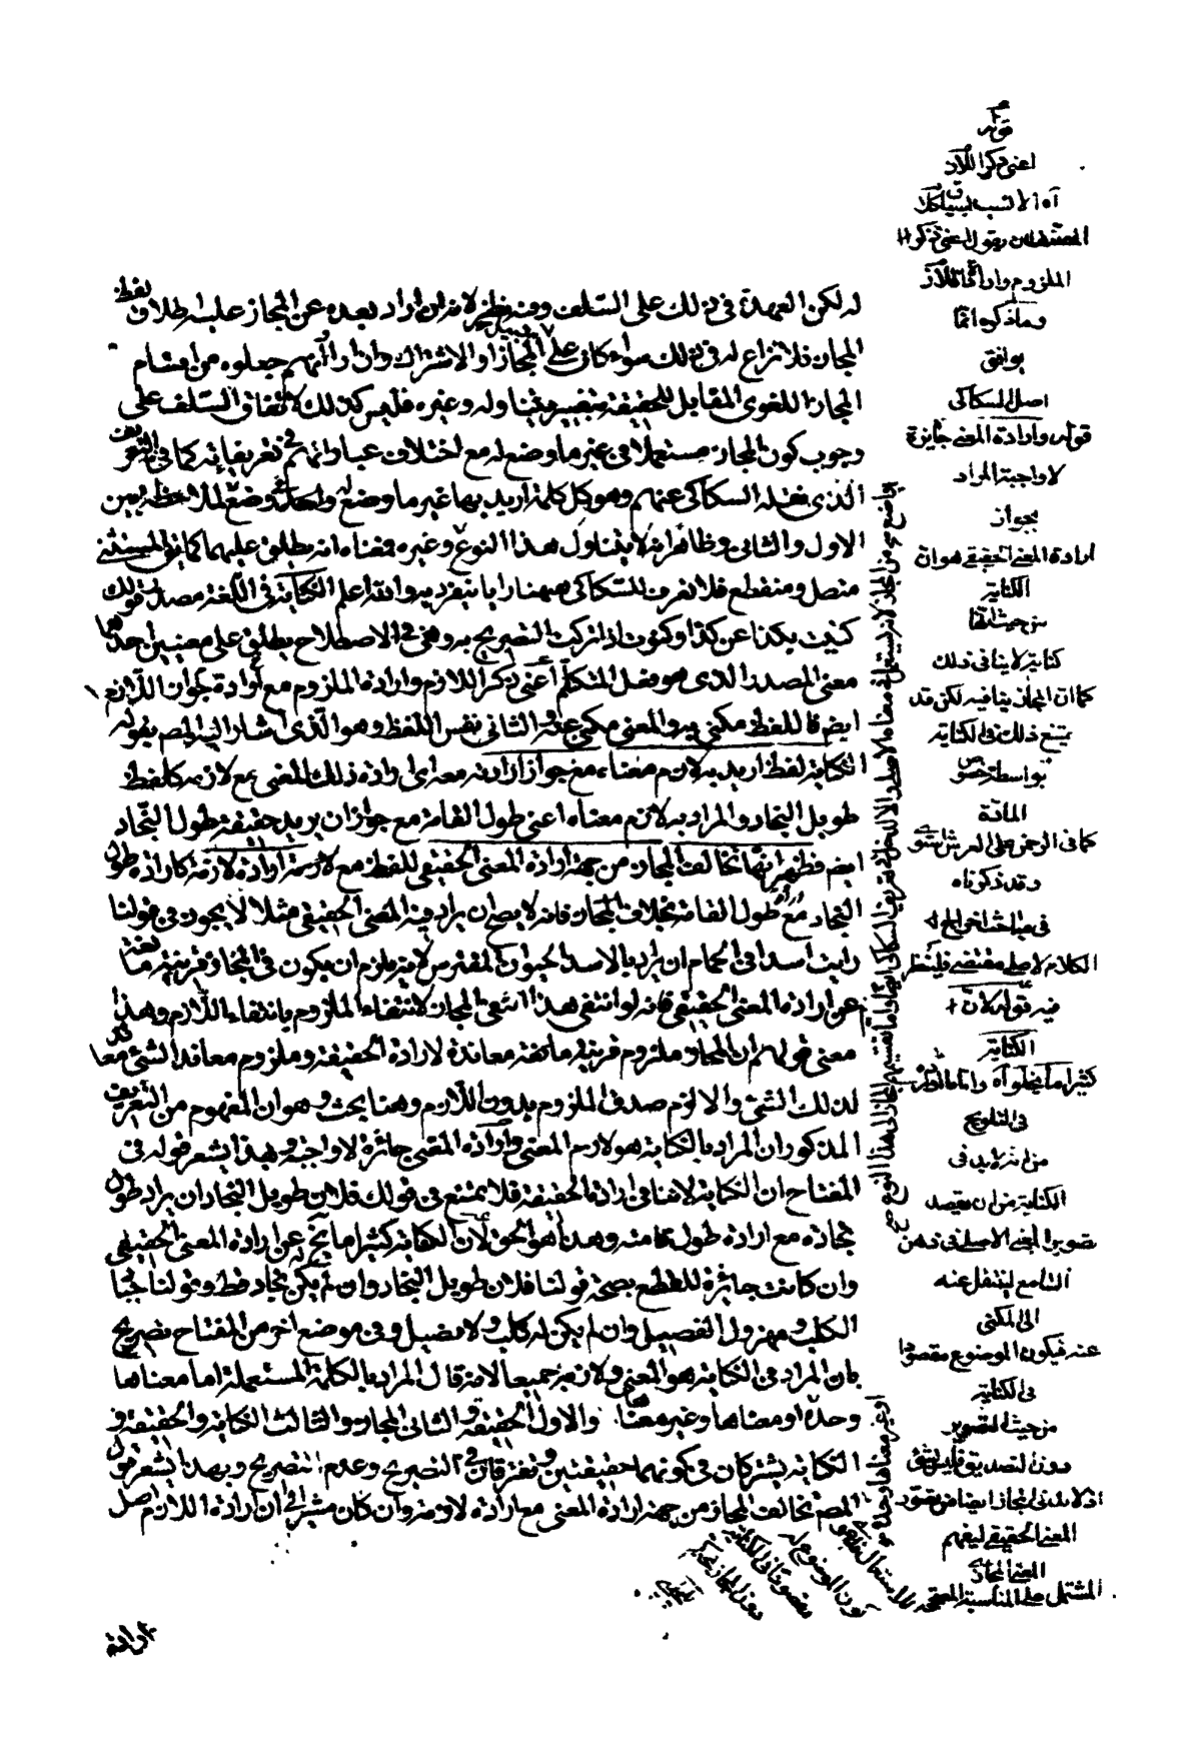 له لكن العهدة في ذلك على السلف وفيه نظر لانه ان اراد بعده عن المجاز عليه اطلاق لفظ
المجاز فلا نزاع له في ذلك سواء كان على سبيل المجاز او الاشتراك وان اراد انهم جعلوه من اقسام
المجاز اللغوى المقابل للحقيقة بتفسير يتناوله وغيره فليس كذلك لاتفاق السلف على
وجوب كون المجاز مستعملا في غير ما وضع له مع اختلاف عباراتهم في تعريفاته كما في التعريف
الذى نقله السكاكى عنهم وهو كل كلمة اريد بها غير ما وضعت له في وضع واضعها لملاحظة بين
الاول والثانى وظاهر انه لا يتناول هذا النوع وغيره فمعناه انه يطلق عليهما كما يق المستثنى
متصل ومنقطع فلا نعرف للسكاكى ههنا رايا ينفرد به والله اعلم الكناية في اللغة مصدر قولك
كنيت بكذا عن كذا وكنوت اذا تركت التصريح به وهى في الاصطلاح يطلق على معنيين احدهما
معنى المصدر الذى هو فعل المتكلم اعنى ذكر اللازم وارادة الملزوم مع جواز ارادة اللازم
ايضا فاللفظ مكنى به والمعنى مكنى عنه والثانى نفس اللفظ وهو الذى اشار اليه المص بقوله
الكناية لفظ اريد به لازم معناه مع جواز ارادته معه اى ارادة ذلك المعنى مع لازمه كلفظ
طويل النجاد والمراد به لازم معناه اعنى طول القامة مع جواز ان يريد حقيقة طول النجاد
ايضا فظهر انها تخالف المجاز من جهة ارادة المعنى الحقيقى للفظ مع ارادة لازمه كارادة طول
النجاد مع طول القامة بخلاف المجاز فانه لا يصح ان يراد فيه المعنى الحقيقى مثلا لا يجوز في قولنا
رايت اسدا في الحمام ان يراد بالاسد الحيوان المفترس لانه يلزم ان يكون في المجاز قرينة مانعة
عن ارادة المعنى الحقيقى فانه لو انتفى هذا انتفى المجاز لانتفاء الملزوم بانتفاء اللازم وهذا
معنى قولهم ان المجاز ملزوم قرينة مانعة معاندة لارادة الحقيقة وملزوم معاند الشئ معاند
لذلك الشئ والا لزم صدق الملزوم بدون اللازم وهنا بحث وهو ان المفهوم من التعريف
المذكور ان المراد بالكناية هو لازم المعنى وارادة المعنى جائزة لا واجبة وبهذا يشعر قوله في
المفتاح ان الكناية لا تنافى ارادة الحقيقة فلا يمتنع في قولك فلان طويل النجاد ان يراد طول
نجاده مع ارادة طول قامته وهذا هو الحق لان الكناية كثيرا ما تخلو عن ارادة المعنى الحقيقى
وان كانت جائزة للقطع بصحة قولنا فلان طويل النجاد وان لم يكن نجاد قط وقولنا جبان
الكلب ومهزول الفصيل وان لم يكن له كلب ولا فصيل وفى موضع اخر من المفتاح تصريح
بان المراد في الكناية هو المعنى ولازمه جميعا لانه قال المراد بالكلمة المستعملة اما معناها
وحده او معناها وغير معناها والاول الحقيقة والثانى المجاز والثالث الكناية والحقيقة و
الكناية يشتركان في كونهما حقيقتين ويفترقان في التصريح وعدم التصريح وبهذا يشعر قول
المص تخالف المجاز من جهة ارادة المعنى مع ارادة لازمه وان كان مشيرا الى ان ارادة اللازم اصل
ارادة
قوله
اعنى ذكر اللازم
آه الانسب بسياق كلام
المصنف ان يقول اعنى ذكر
الملزوم وارادة اللازم
وما ذكره انما
يوافق
اصل السكاكى
قوله وارادة المعنى جايزة
لا واجبة المراد
بجواز
ارادة المعنى الحقيقى هو ان
الكناية
من حيث انها
كناية لا ينافى ذلك
كما ان المجاز ينافيه لكن قد
يمتنع ذلك في الكناية
بواسطة خصوص
المادة
كما في الرحمن على العرش استوى
وقد ذكرناه
الكلام لاصل مقتضى فلينظر
فيه قوله لان
الكناية
كثيرا ما تخلو آه
في التلويح
من انه لابد في
الكناية من ان يقصد
تصوير المعنى الاصلى في ذهن
السامع لينتقل عنه
الى المكنى
عنه فيكون الموضوع مقصودا
في الكناية
من حيث التصوير
دون التصديق
اذ لابد في المجاز ايضا من تصور
المعنى الحقيقى ليفهم
المعنى المجازى
المشتمل على المناسبة المصححة للاستعمال
كون الموضوع له
مقصودا في الكناية
دون المجاز